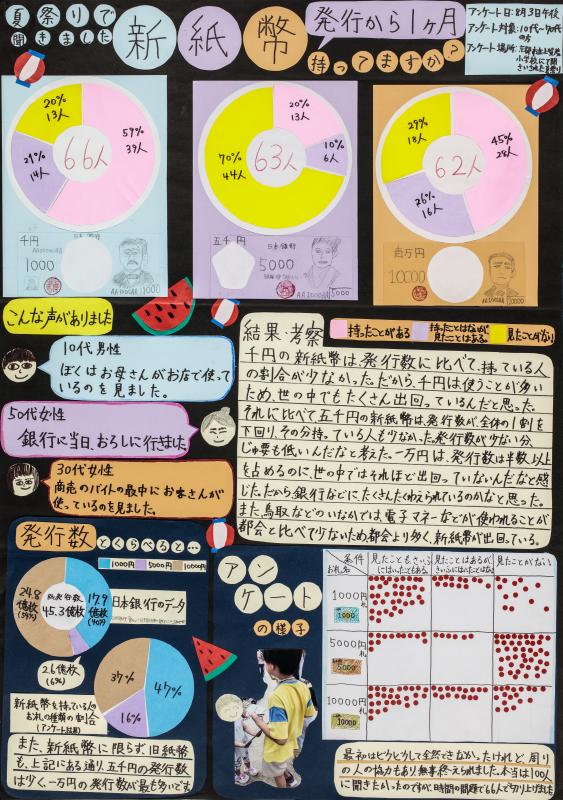 夏祭りで
聞きました
新紙幣
発行から1ヶ月
持ってますか?
アンケート日:8月3日午後
アンケート対象:10代~70代
の方
アンケート場所:
小学校にて開
20%
13人
59%
39人
21%
14人
66人
20%
13人
10%
6人
70%
44人
63人
29%
18人
45%
28人
26%
16人
62人
千円
1000
AA1000AA
1000
五千円
日本銀行
5000
AA1000AA
5000
壱万円
10000
AA1000AA
10000
こんな声がありました
10代男性
ぼくはお母さんがお店で使って
いるのを見ました。
50代女性
銀行に当日、おろしに行きました
30代女性
商売のバイトの最中にお客さんが
使っているのを見ました。
結果・考察
持ったことがある
持ったことはないが、
見たことはある。
見たことがない
千円の新紙幣は、発行数に比べて、持っている人
の割合が少なかった。だから、千円は使うことが多い
ため、世の中でもたくさん出回っているんだと思った。
それに比べて五千円の新紙幣は、発行数が、全体の1割を
下回り、その分持っている人も少なかった。発行数が少ない分、
じゅ要も低いんだなと考えた。一万円は、発行数は半数以上
を占めるのに、世の中ではそれほど出回っていないんだなと感
じた。だから、銀行などにたくさんたくわえられているのかなと思った。
また、鳥取などのいなかでは、電子マネーなどが使われることが
都会と比べて少ないため、都会より多く、新紙幣が出回っている。
発行数とくらべると…
1000円
5000円
10000円
24.8
億枚
総発行数
45.3億枚
17.9
億枚
(40%)
日本銀行のデータ
2.6億枚
(6%)
新紙幣を持っている人の
お札の種類の割合
(アンケート結果)
37%
47%
16%
また、新紙幣に限らず旧紙幣
も、上記にある通り、五千円の発行数
は少く、一万円の発行数が最も多いです
アンケート
の様子
条件
お札名
見たこともさいふ
にはいったこともある。
見たことはあるが、
さいふにはいったことはない
見たことがない
1000円
札
1000
5000円
札
5000
10000円
札
10000
最初はビクビクして全然できなかったけれど、周り
の人の協力もあり、無事、終えられました。本当は100人
に聞きたかったのですが、時間の問題で66人で切り上げました